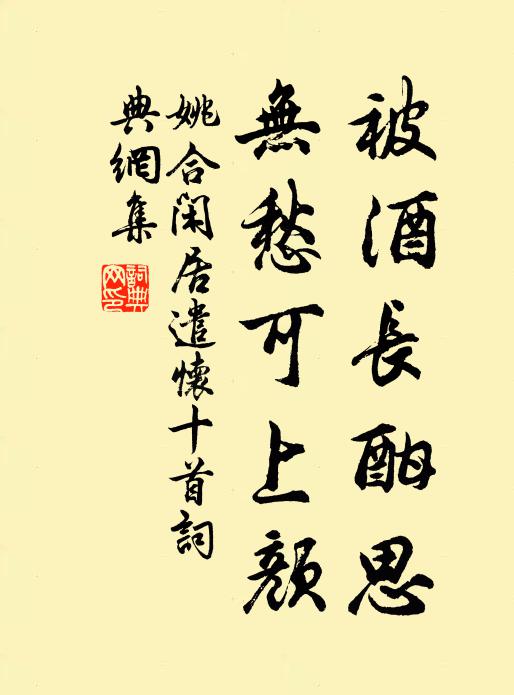 被酒長酣思
無愁可上顏
姚合閑居遣懷十首詞
典網集
詞典網印